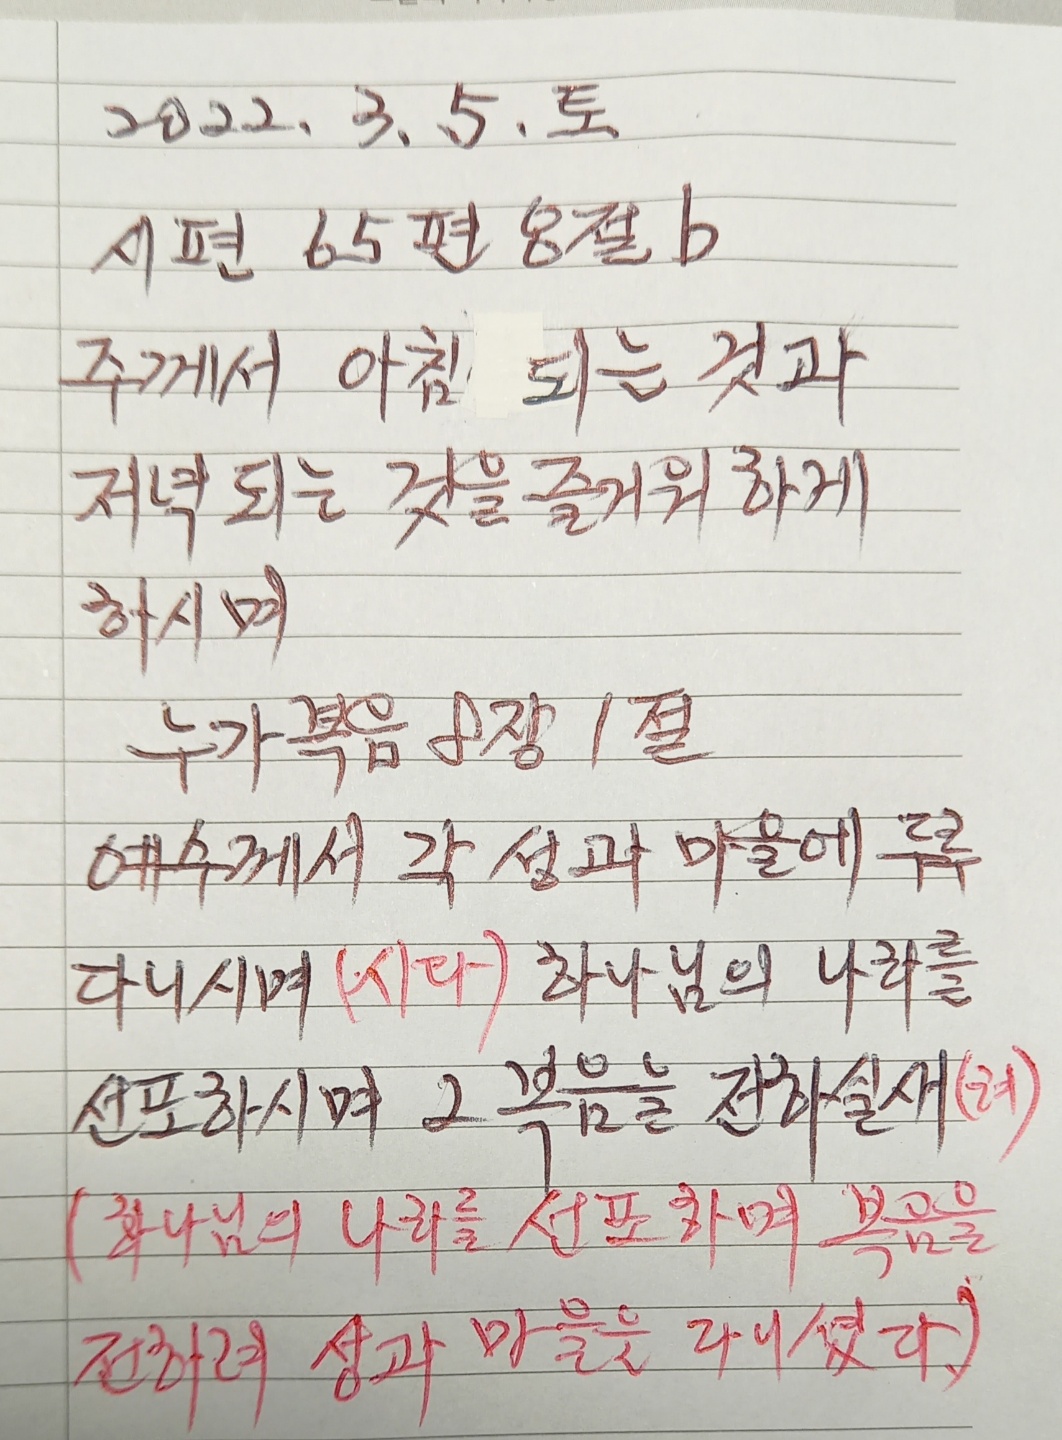 2022. 3. 5. 토
시편 65편 8절 b
주께서 아침 되는 것과
저녁 되는 것을 즐거워 하게
하시며
누가복음 8장 1절
예수께서 각 성과 마을에 두루
다니시며 (시다) 하나님의 나라를
선포하시며 그 복음을 전하실새 (려)
(하나님의 나라를 선포하며 복음을
전하려 성과 마을을 다니셨다.)